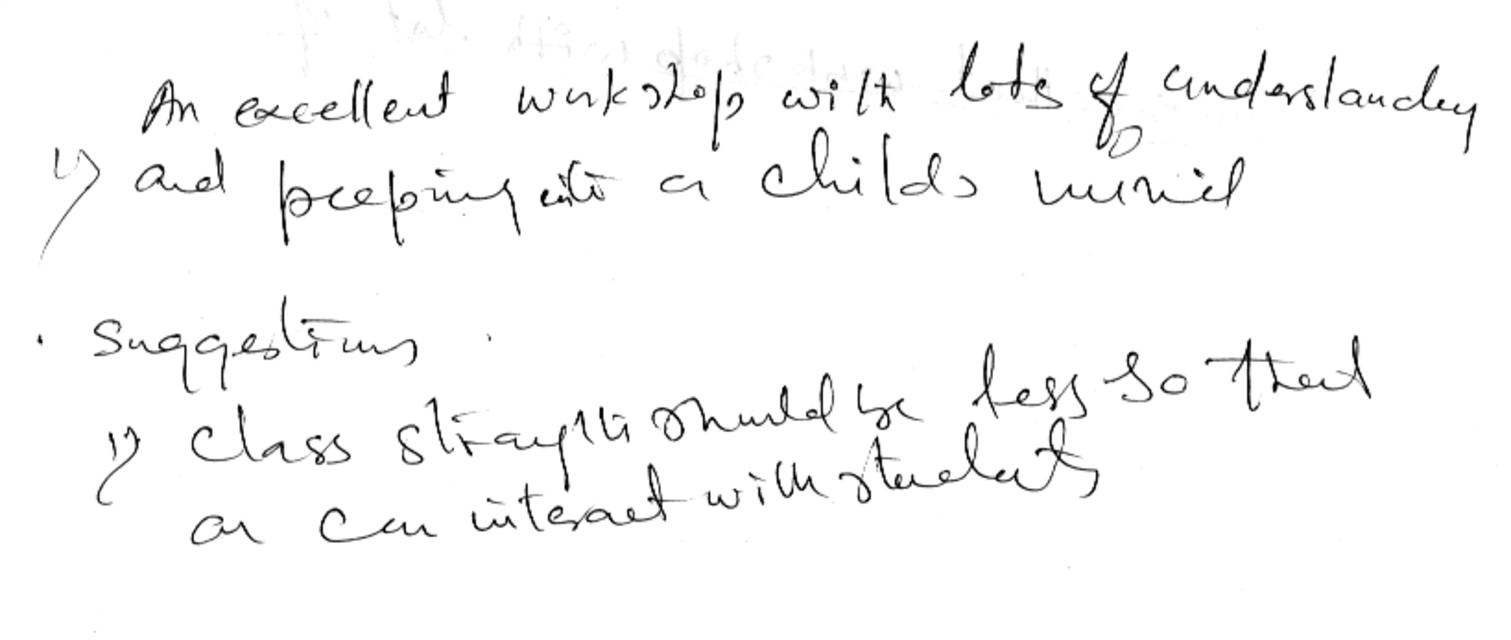 An excellent workshop with lots of understanding
1) and peeping into a childs mind
. Suggestions
1) Class strength should be less so that
can interact with students